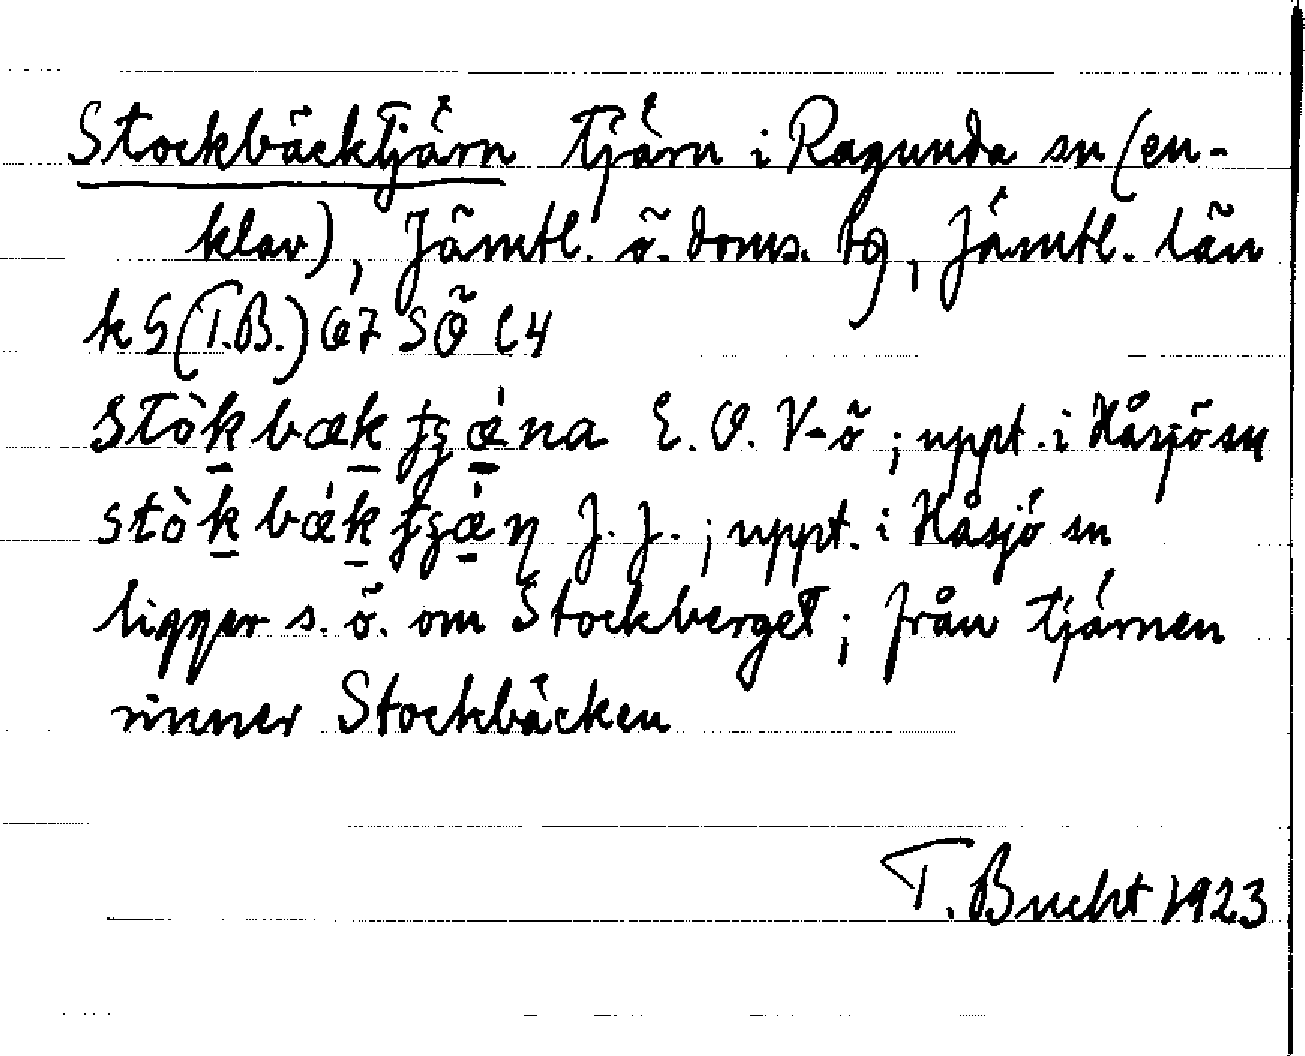 Stockbäcktjärn tjärn i Ragunda sn (en-
klav), Jämtl. ö. doms. tg, Jämtl. län
kS (T.B.) 67 SÖ C4
stòk̠bæk̠ ʄʒǽ̠na E. O. V-ö; uppt. i Håsjö sn
stòk̠bǽk̠ ʄʒǽ̠η J. J.; uppt. i Håsjö sn
ligger s. ö. om Stockberget; från tjärnen
rinner Stockbäcken
T. Bucht 1923